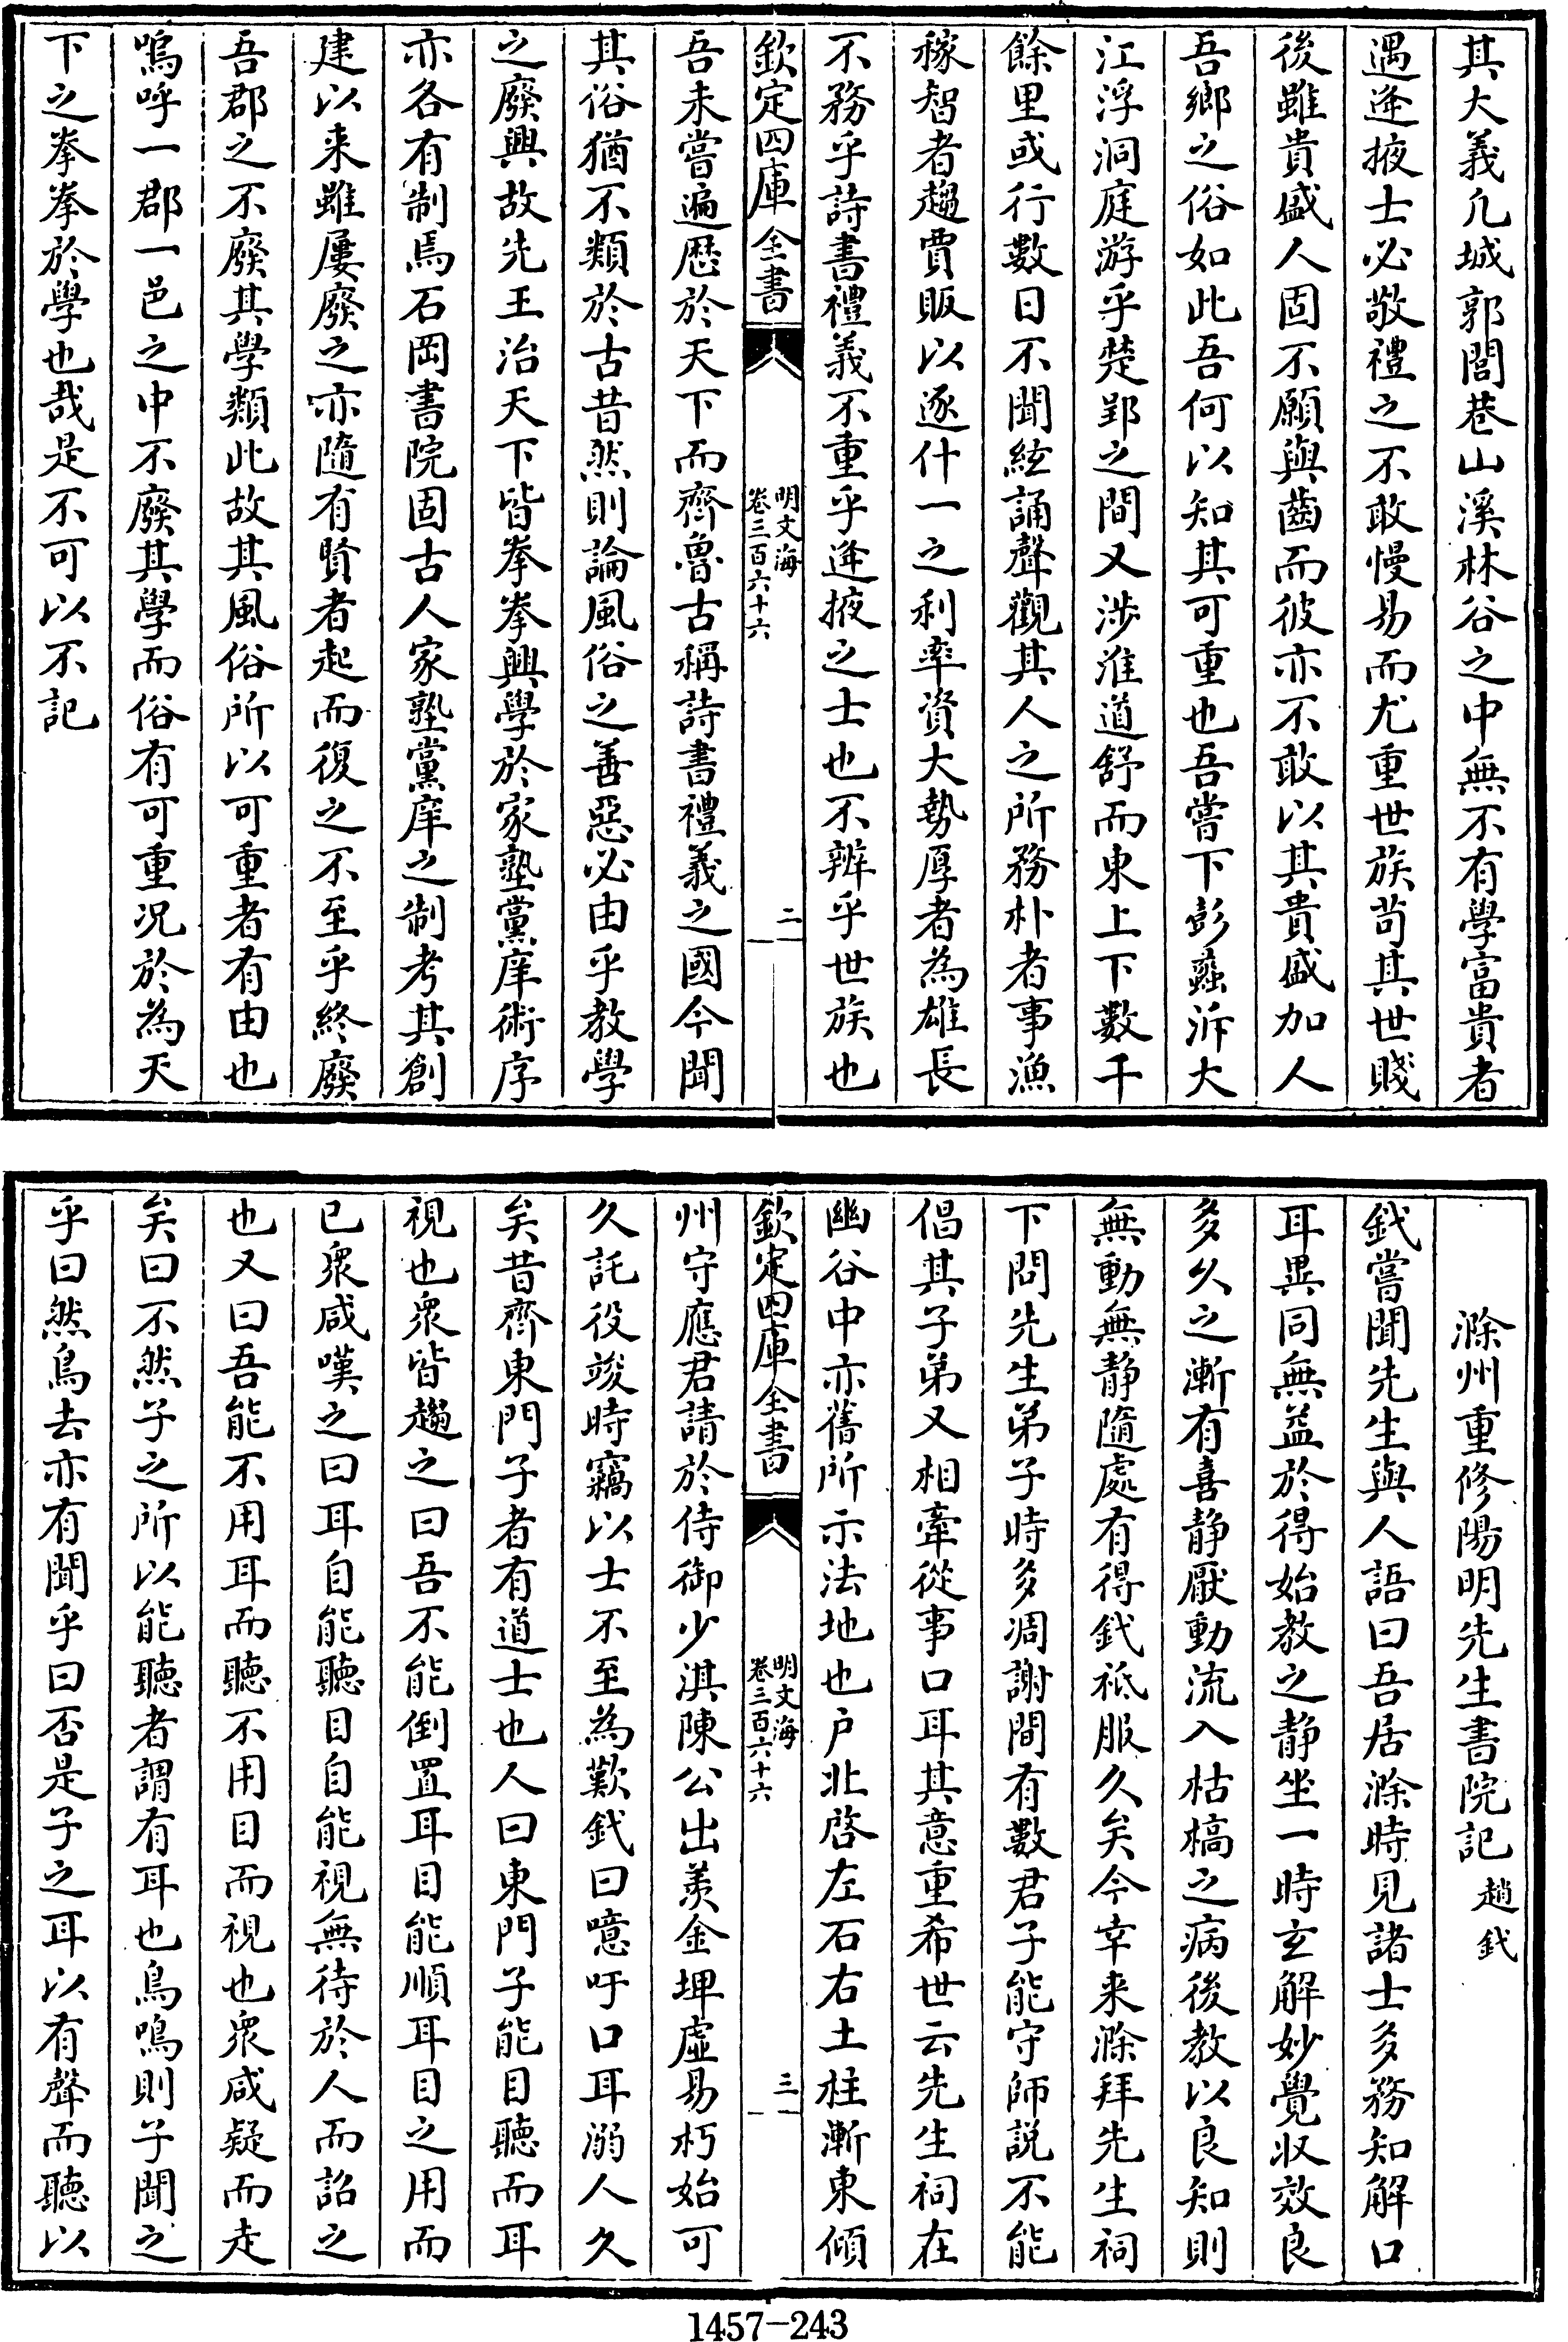 其大義凡城郭閭巷山溪林谷之中無不有學富貴者
遇逢掖士必敬禮之不敢慢易而尤重世族茍其世賤
後雖貴盛人固不願與齒而彼亦不敢以其貴盛加人
吾鄉之俗如此吾何以知其可重也吾嘗下彭蠡泝大
江浮洞庭游乎楚郢之間又涉淮道舒而東上下數千
餘里或行數日不聞絃誦聲觀其人之所務朴者事漁
稼智者趨賈販以逐什一之利率資大勢厚者為雄長
不務乎詩書禮義不重乎逢掖之士也不辨乎世族也
欽定四庫全書
明文海
卷三百六十六
二
吾未嘗遍歴於天下而齊魯古稱詩書禮義之國今聞
其俗猶不類於古昔然則論風俗之善惡必由乎教學
之廢興故先王治天下皆拳拳興學於家塾黨庠術序
亦各有制焉石岡書院固古人家塾黨庠之制考其創
建以来雖屢廢之亦隨有賢者起而復之不至乎終廢
吾郡之不廢其學類此故其風俗所以可重者有由也
嗚呼一郡一邑之中不廢其學而俗有可重况於為天
下之拳拳於學也哉是不可以不記
滁州重修陽明先生書院記 趙釴
釴嘗聞先生與人語曰吾居滁時見諸士多務知解口
耳異同無益於得始教之静坐一時玄解妙覺收效良
多久之漸有喜静厭動流入枯槁之病後教以良知則
無動無静隨處有得釴祗服久矣今幸来滁拜先生祠
下問先生弟子時多凋謝間有數君子能守師説不能
倡其子弟又相牽從事口耳其意重希世云先生祠在
幽谷中亦舊所示法地也户北啓左石右土柱漸東傾
欽定四庫全書
明文海
卷三百六十六
三
州守應君請於侍御少淇陳公出羨金埤虛易朽始可
久託役竣時竊以士不至為歎釴曰噫吁口耳溺人久
矣昔齊東門子者有道士也人曰東門子能目聽而耳
視也衆皆趨之曰吾不能倒置耳目能順耳目之用而
已衆咸嘆之曰耳自能聽目自能視無待於人而詔之
也又曰吾能不用耳而聽不用目而視也衆咸疑而走
矣曰不然子之所以能聽者謂有耳也鳥鳴則子聞之
乎曰然鳥去亦有聞乎曰否是子之耳以有聲而聽以
1457-243